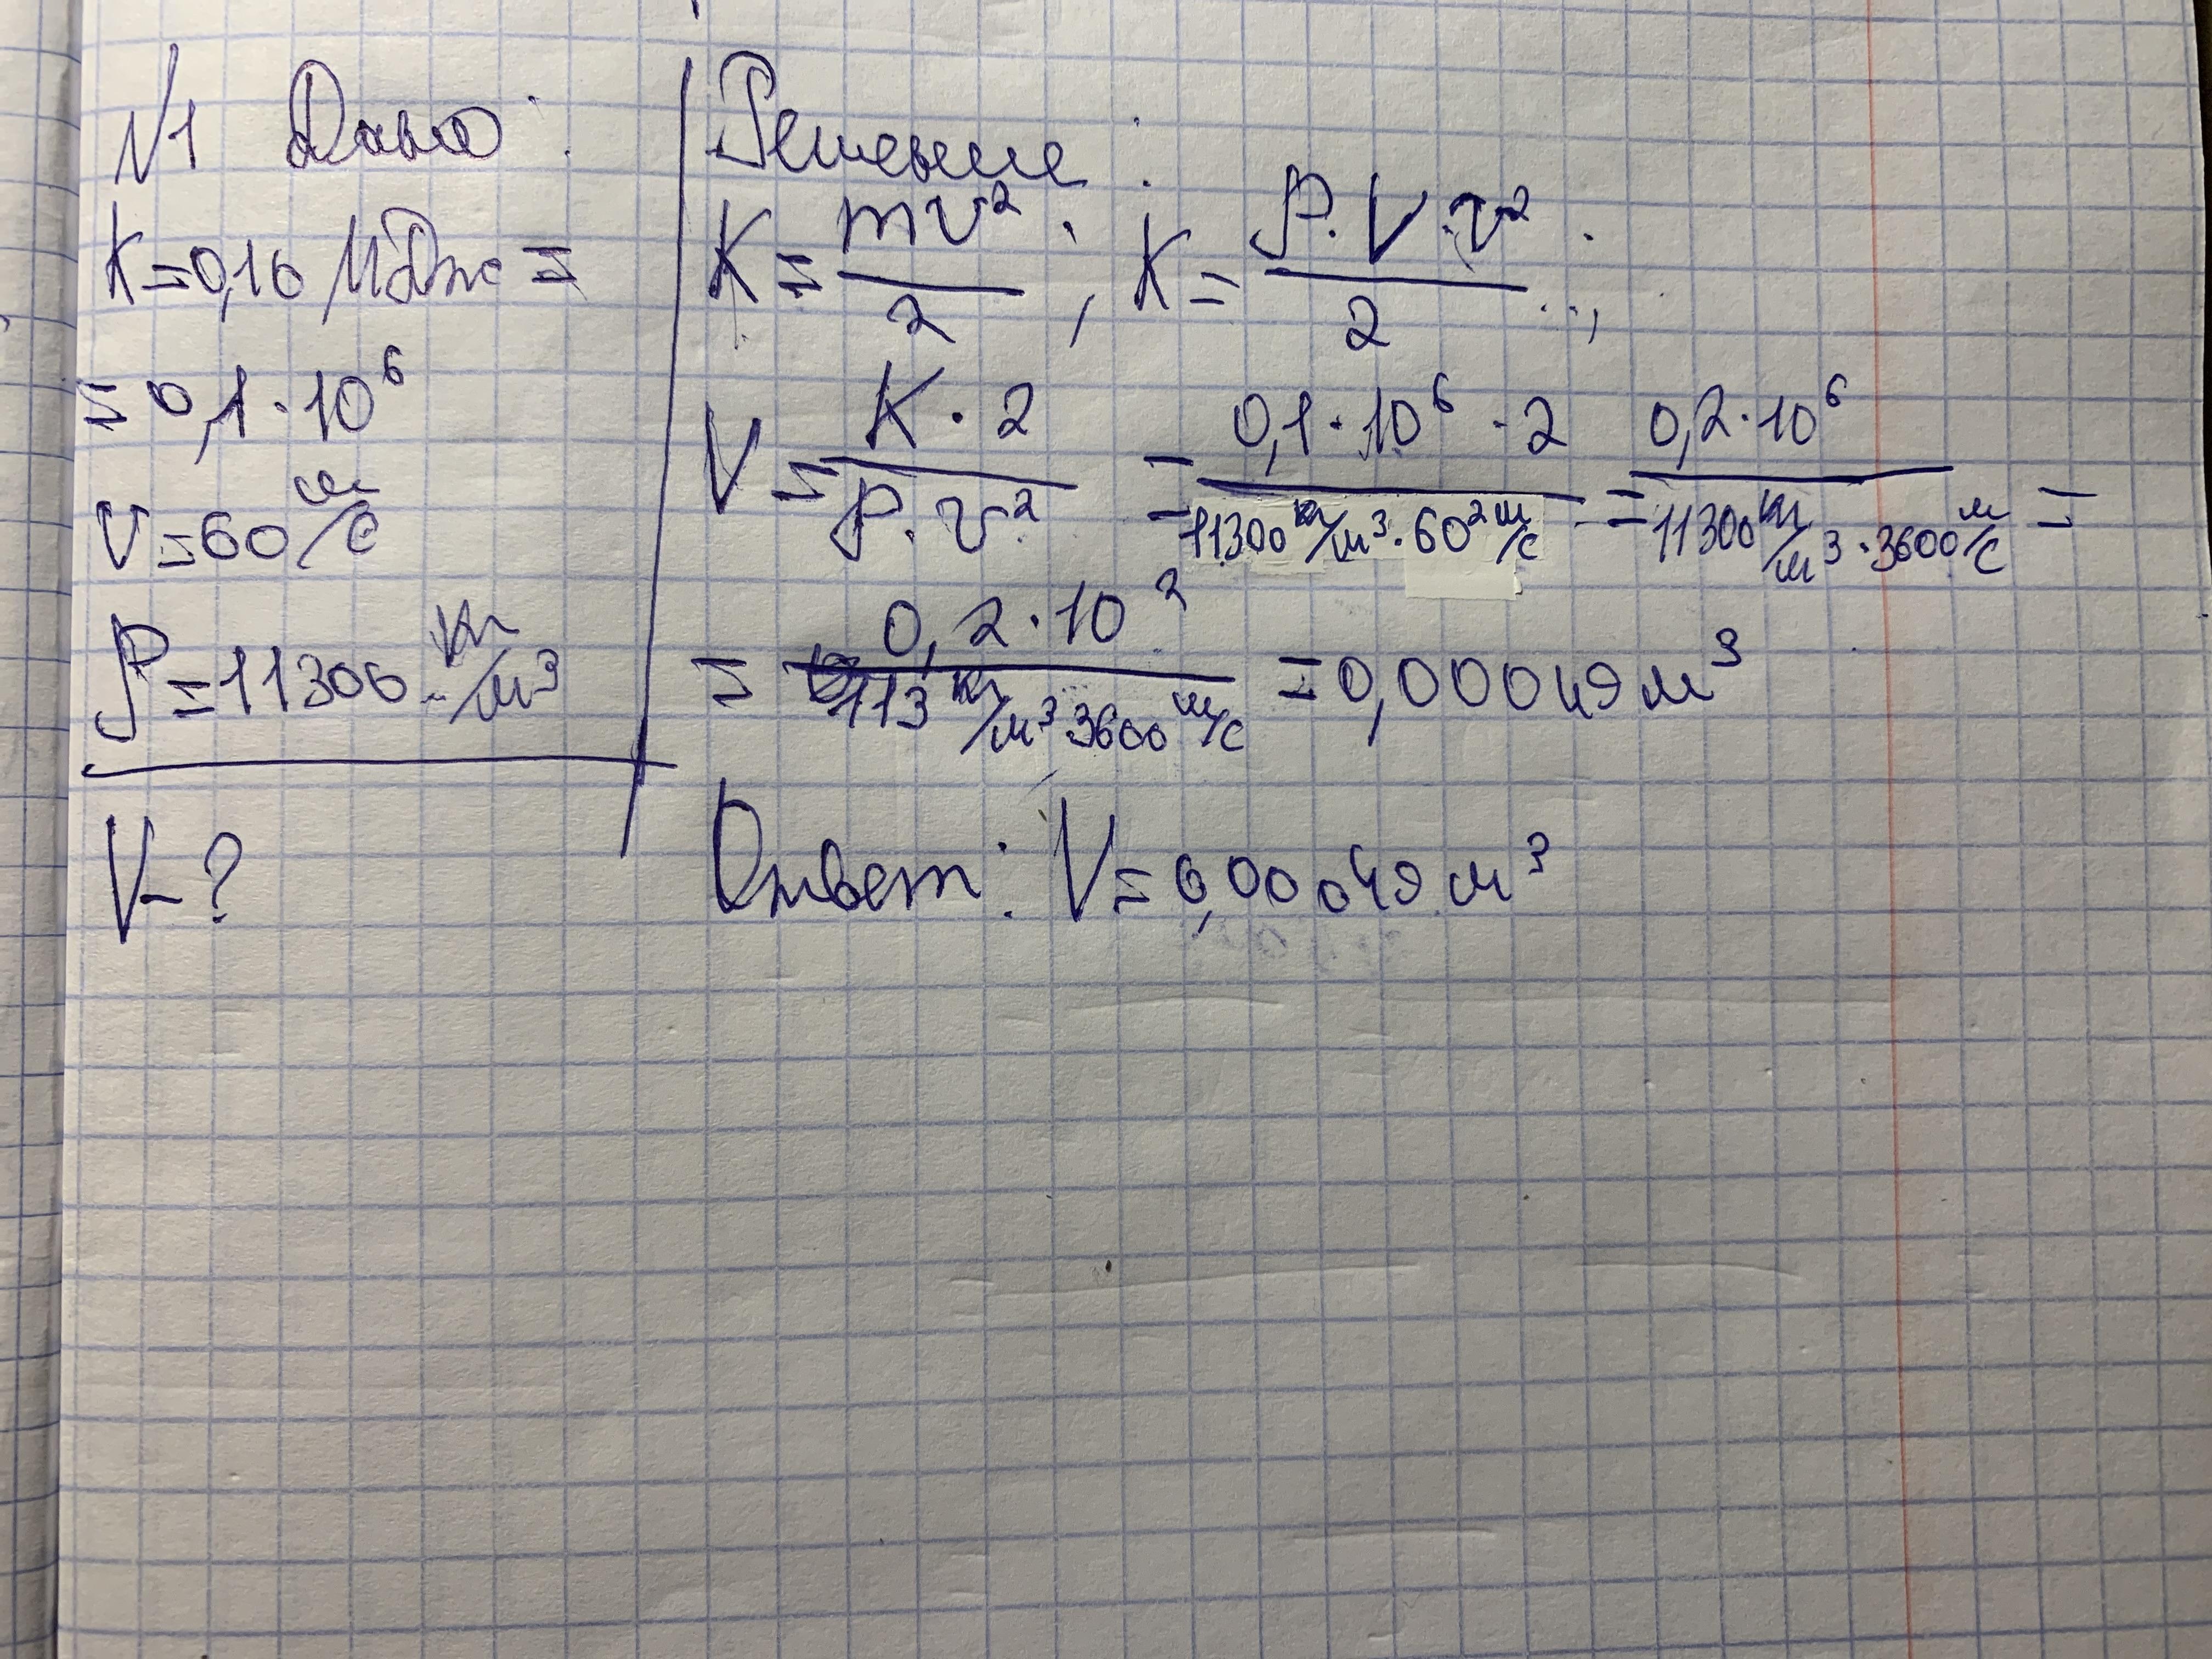 N1 Дано:
K=0,16 МДж =
= 0,1·10⁶
v=60 м/с
ρ=11300 кг/м³
V-?
Решение:
K = mv²/2 ; K = ρ·V·v²/2 ;
V = K·2/ρ·v² = 0,1·10⁶·2/11300 кг/м³·60² м/с = 0,2·10⁶/11300 кг/м³·3600 м/с =
= 0,2·10²/113 кг/м³ 3600 м/с = 0,00049 м³
Ответ: V=0,00049 м³